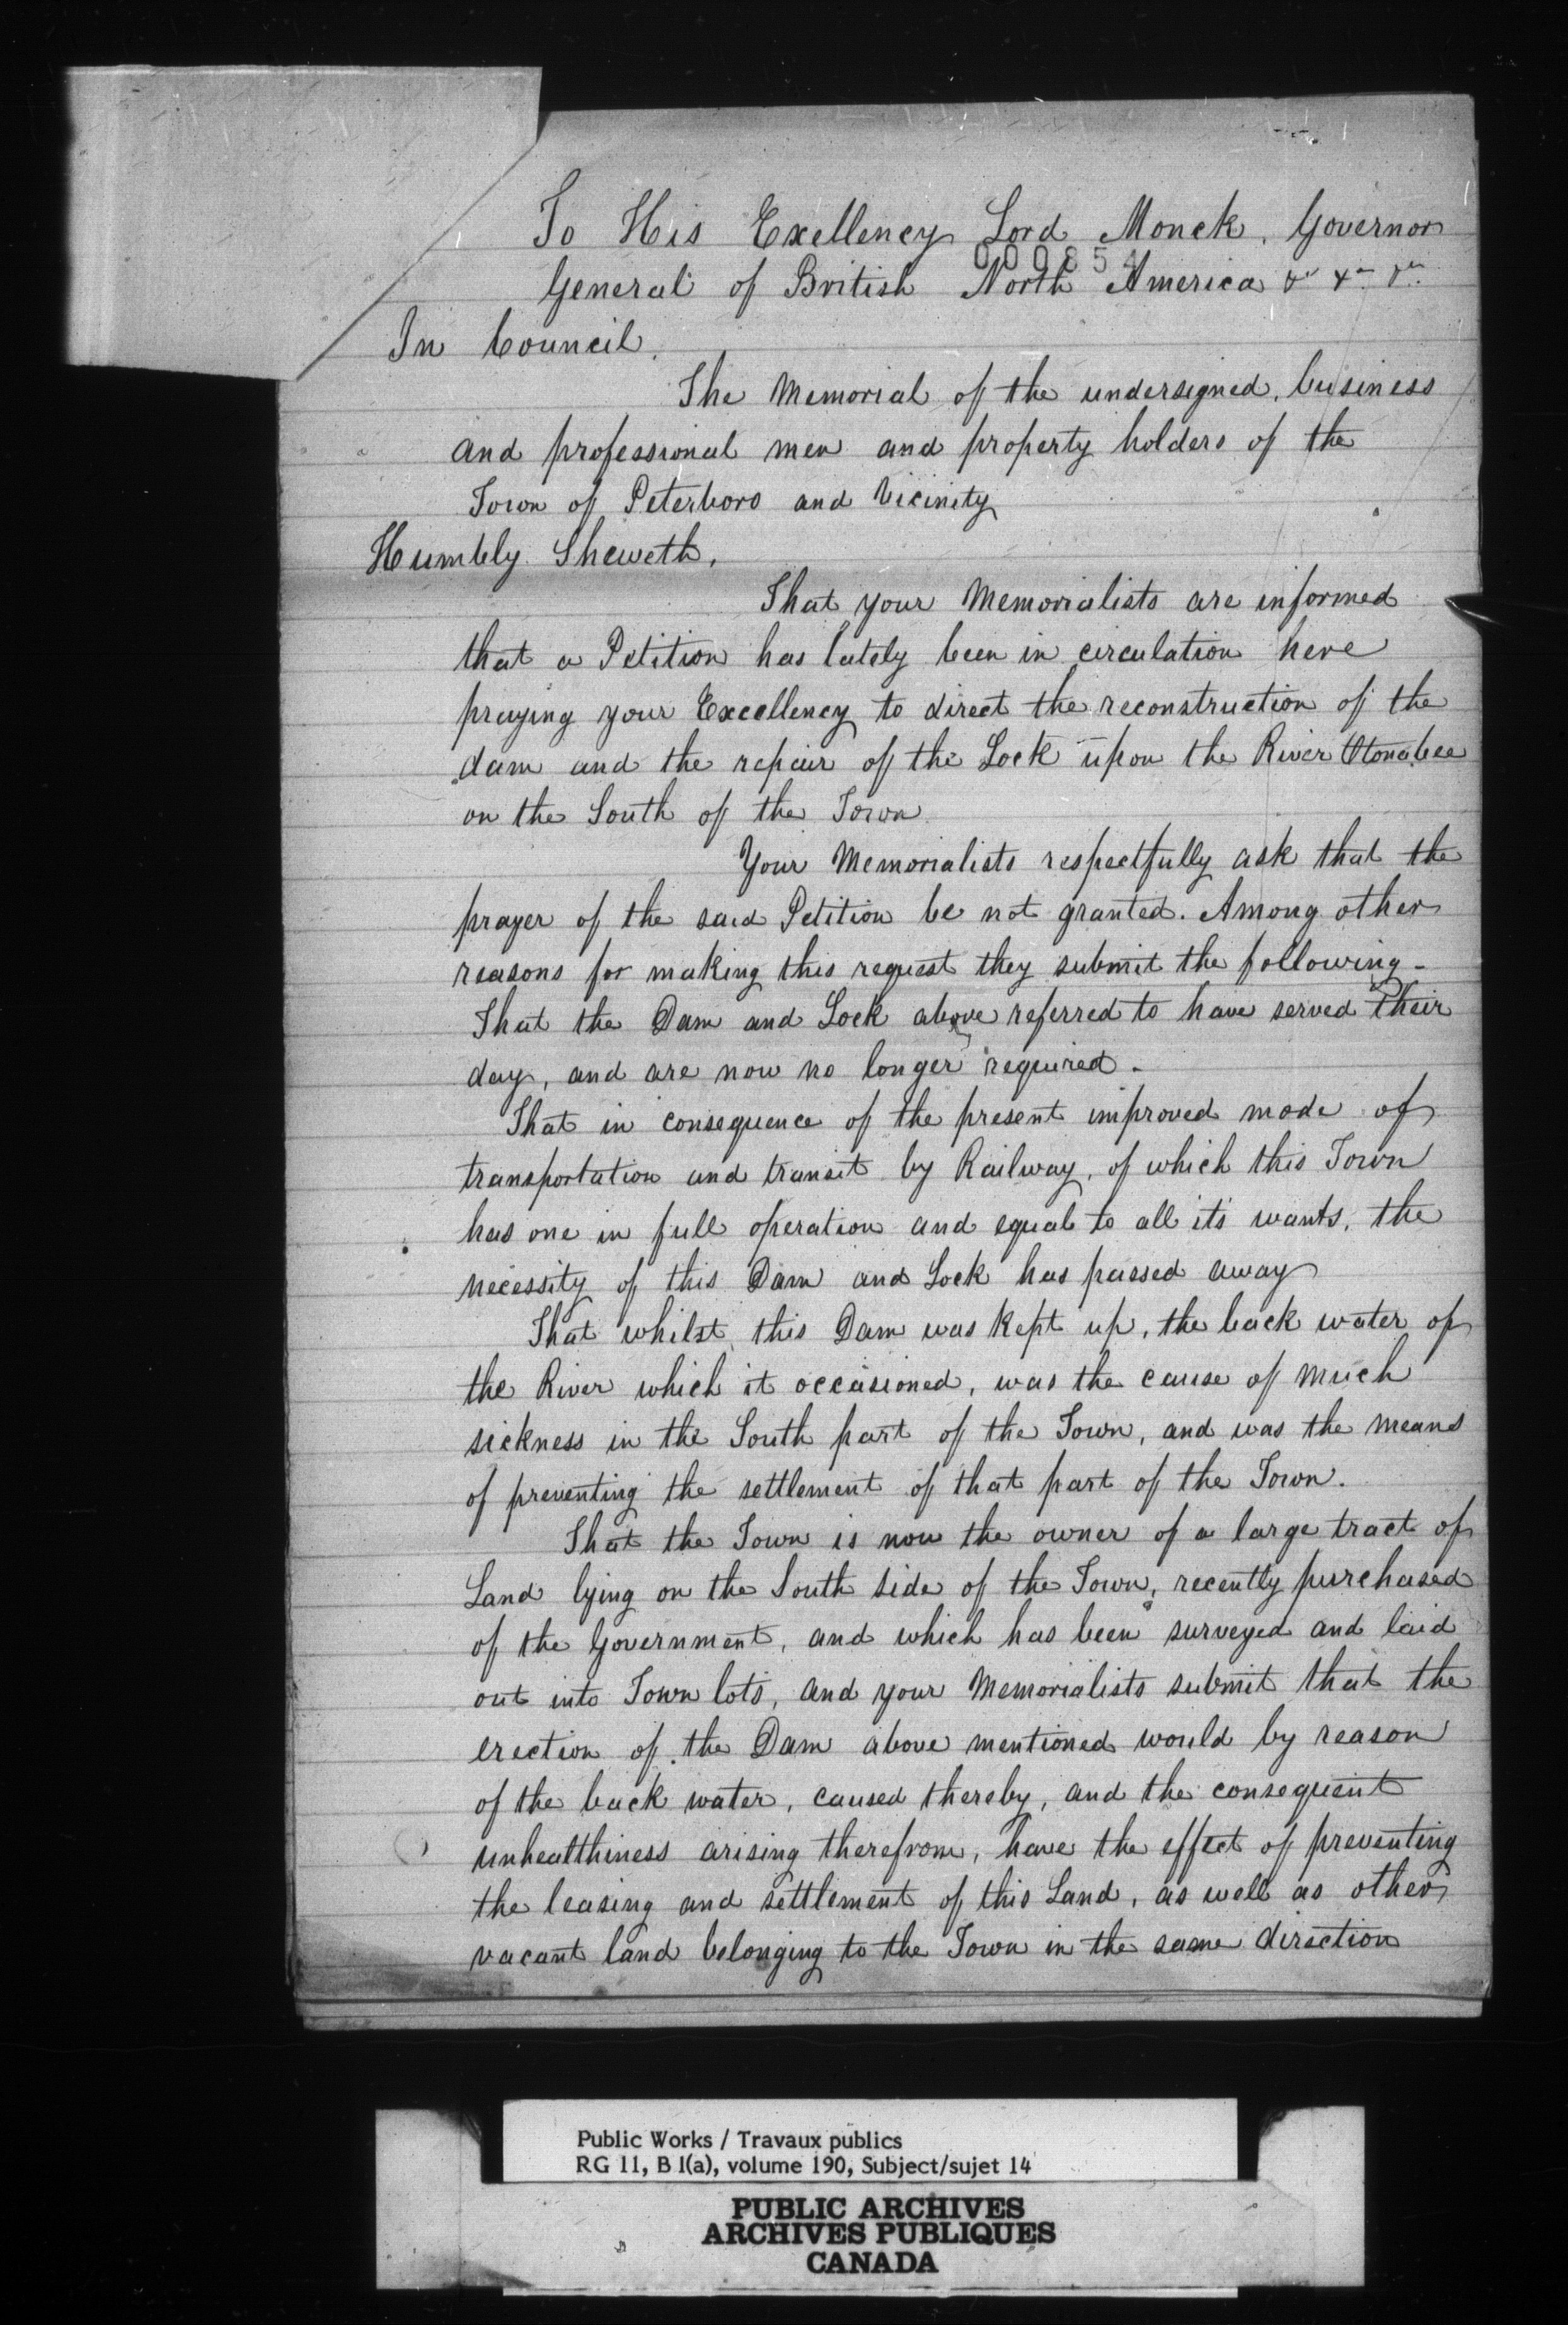 To His Exellency Lord Monck, Governor
000854
General of British North America &c &c &c
In Council,
The Memorial of the undersigned, business
and professional men and property holders of the
Town of Peterboro and Vicinity
Humbly Sheweth,
That your Memorialists are informed
that a Petition has lately been in circulation here
praying your Excellency to direct the reconstruction of the
dam and the repair of the Lock upon the River Otonabee
on the South of the Town
Your Memorialists respectfully ask that the
prayer of the said Petition be not granted. Among other
reasons for making this request they submit the following -
That the Dam and Lock above referred to have served their
day, and are now no longer required -
That in consequence of the present improved mode of
transportation and transit by Railway, of which this Town
has one in full operation and equal to all it's wants, the
necessity of this Dam and Lock has passed away
That whilst this Dam was kept up, the back water of
the River which it occasioned, was the cause of much
sickness in the South part of the Town, and was the means
of preventing the settlement of that part of the Town.
That the Town is now the owner of a large tract of
Land lying on the South side of the Town, recently purchased
of the Government, and which has been surveyed and laid
out into Town lots, and your Memorialists submit that the
erection of the Dam above mentioned would by reason
of the back water, caused thereby, and the consequent
unhealthiness arising therefrom, have the effect of preventing
the leasing and settlement of this Land, as well as other
vacant land belonging to the Town in the same direction
Public Works / Travaux publics
RG 11, B 1(a), volume 190, Subject/sujet 14
PUBLIC ARCHIVES
ARCHIVES PUBLIQUES
CANADA